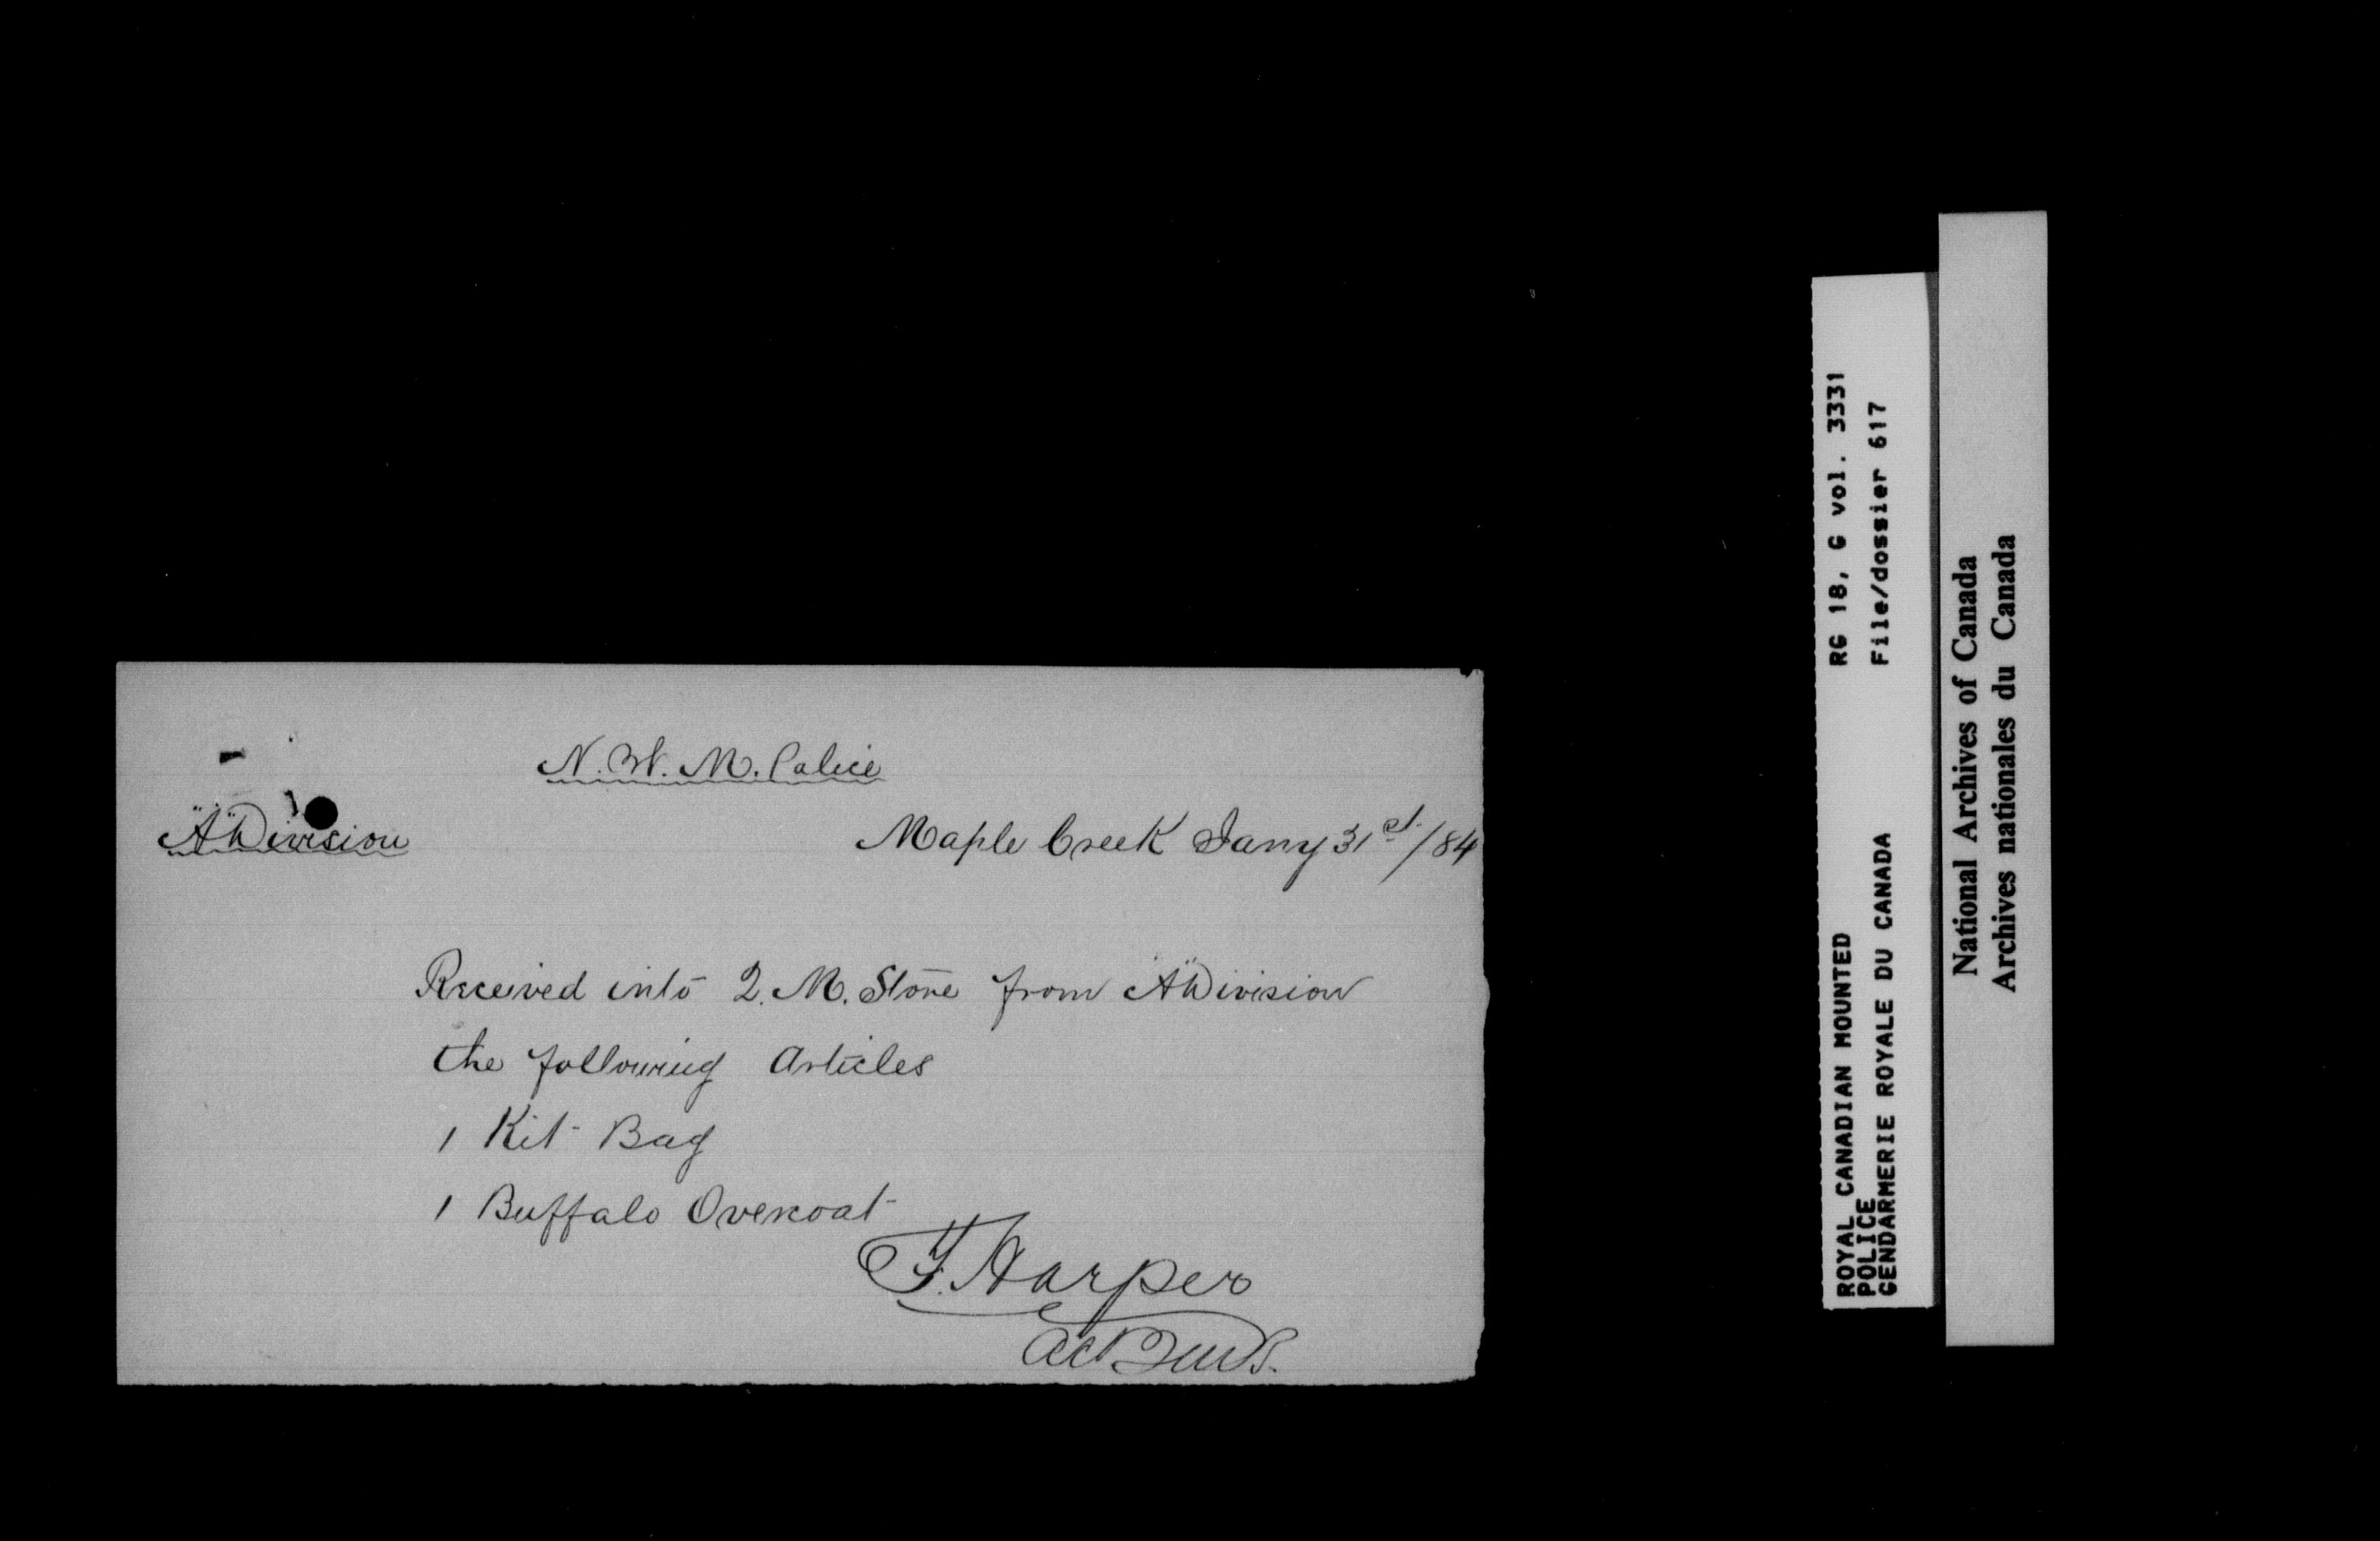 N. W. M. Police
"A" Division
Maple Creek Jany 31st/84
Received into Q. M. Store from "A" Division
the following Articles
1 Kit Bag
1 Buffalo Overcoat
F. Harper
ROYAL CANADIAN MOUNTED RG 18, G vol. 3331
POLICE File/dossier 617
GENDARMERIE ROYALE DU CANADA
National Archives of Canada
Archives nationales du Canada